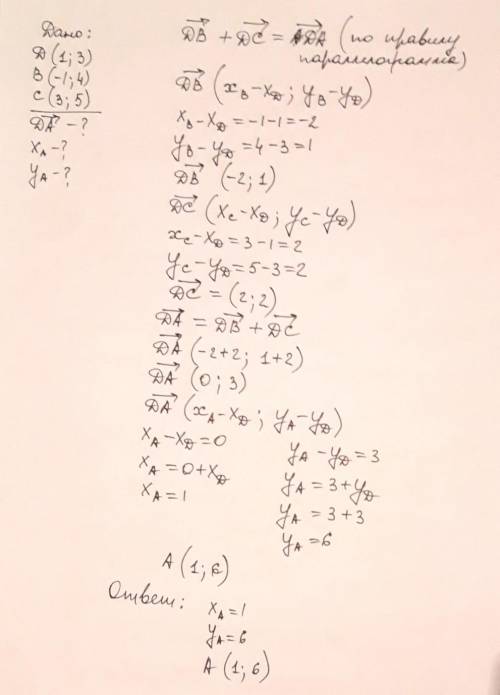 Дано:
D (1; 3)
B (-1; 4)
C (3; 5)
DA⃗ - ?
x_A - ?
y_A - ?
DB⃗ + DC⃗ = DA⃗ (по правилу
параллелограмма)
DB⃗ (x_B - x_D; y_B - y_D)
x_B - x_D = -1 - 1 = -2
y_B - y_D = 4 - 3 = 1
DB⃗ (-2; 1)
DC⃗ (x_C - x_D; y_C - y_D)
x_C - x_D = 3 - 1 = 2
y_C - y_D = 5 - 3 = 2
DC⃗ = (2; 2)
DA⃗ = DB⃗ + DC⃗
DA⃗ (-2+2; 1+2)
DA⃗ (0; 3)
DA⃗ (x_A - x_D; y_A - y_D)
x_A - x_D = 0
x_A = 0 + x_D
x_A = 1
y_A - y_D = 3
y_A = 3 + y_D
y_A = 3 + 3
y_A = 6
A (1; 6)
Ответ:
x_A = 1
y_A = 6
A (1; 6)